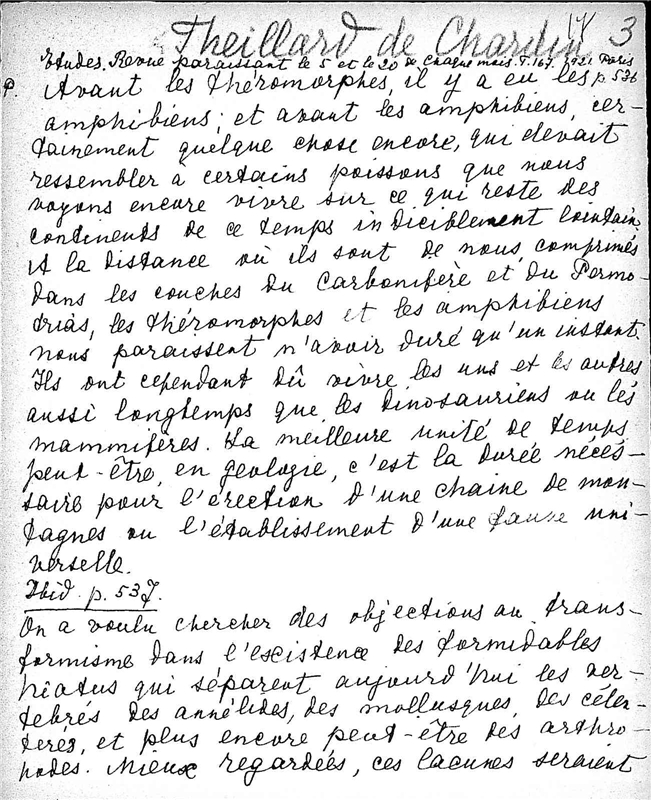 Theillard de Chardin 14 3
Etudes. Revue paraissant le 5 et le 20 de chaque mois. T. 167. 1921 Paris
p. 536
Avant les théromorphes, il y a eu les
amphibiens; et avant les amphibiens, cer-
tainement quelque chose encore, qui devait
ressembler à certains poissons que nous
voyons encore vivre sur ce qui reste des
continents de ce temps indiciblement lointain.
A la distance où ils sont de nous, comprimés
dans les couches du Carbonifère et du Permo-
trias, les théromorphes et les amphibiens
nous paraissent n'avoir duré qu'un instant.
Ils ont cependant dû vivre les uns et les autres
aussi longtemps que les dinosauriens ou les
mammifères. La meilleure unité de temps
peut-être, en géologie, c'est la durée néces-
saire pour l'érection d'une chaine de mon-
tagnes ou l'établissement d'une faune uni-
verselle.
Ibid. p. 537.
On a voulu chercher des objections au trans-
formisme dans l'escistence des formidables
hiatus qui séparent aujourd'hui les ver-
tebrés des annélides, des mollusques, des célen-
terés, et plus encore peut-être des arthro-
podes. Mieux regardées, ces lacunes seraient